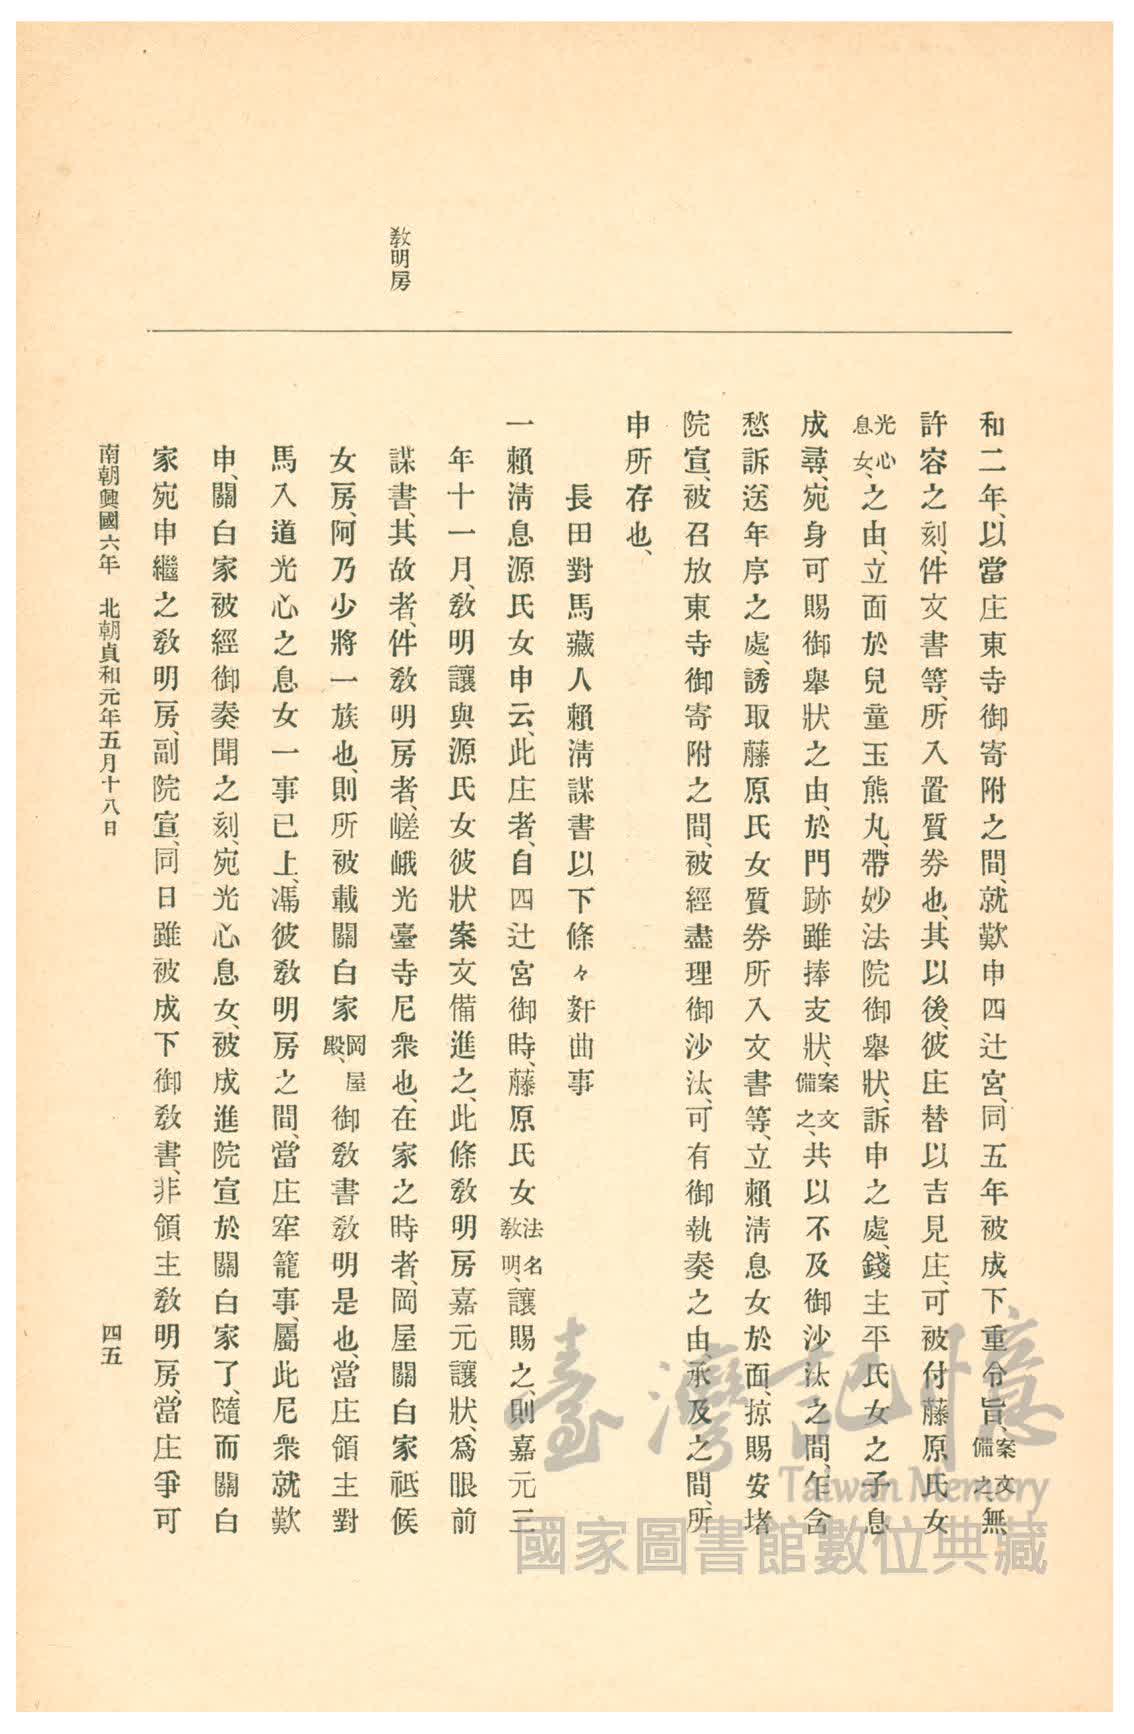 敎明房
和二年、以當庄東寺御寄附之間、就歎申四辻宮、同五年被成下重令旨、案文備之、無
許容之刻、件文書等、所入置質券也、其以後、彼庄替以吉見庄、可被付藤原氏女
光心息女、之由、立面於兒童玉熊丸、帶妙法院御擧狀、訴申之處、錢主平氏女之子息
成尋、宛身可賜御擧狀之由、於門跡雖捧支狀、案文備之、共以不及御沙汰之間、乍含
愁訴送年序之處、誘取藤原氏女質券所入文書等、立賴淸息女於面、掠賜安堵
院宣、被召放東寺御寄附之間、被經盡理御沙汰、可有御執奏之由、承及之間、所
申所存也、
長田對馬藏人賴淸謀書以下條々姧曲事
一賴淸息源氏女申云、此庄者、自四辻宮御時、藤原氏女法名敎明、讓賜之、則嘉元三
年十一月、敎明讓與源氏女彼狀案文備進之、此條敎明房嘉元讓狀、爲眼前
謀書、其故者、件敎明房者、嵯峨光臺寺尼衆也、在家之時者、岡屋關白家祗候
女房、阿乃少將一族也、則所被載關白家岡屋殿、御敎書敎明是也、當庄領主對
馬入道光心之息女一事已上、馮彼敎明房之間、當庄牢籠事、屬此尼衆就歎
申、關白家被經御奏聞之刻、宛光心息女、被成進院宣於關白家了、隨而關白
家宛申繼之敎明房、副院宣、同日雖被成下御敎書、非領主敎明房、當庄爭可
南朝興國六年　北朝貞和元年五月十八日
四五
臺灣記憶
Taiwan Memory
國家圖書館數位典藏